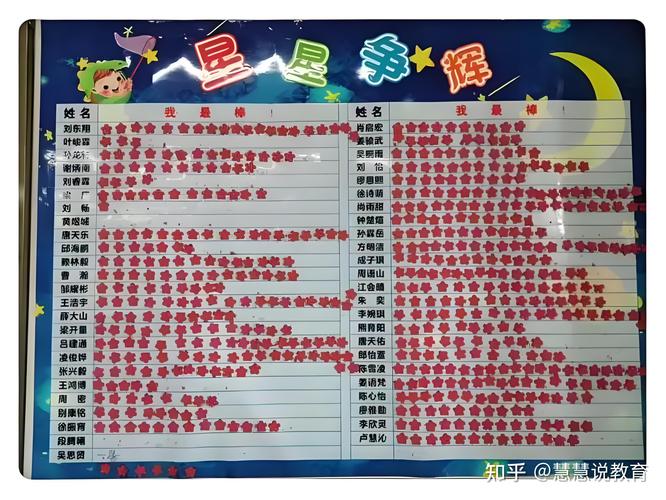 星星争辉
姓名 我最棒!
刘东翔
叶峻霖
谢炳南
刘睿霖
刘畅
黄煜城
唐天乐
邱海鹏
赖林毅
曹瀚
邹耀彬
王浩宇
薛大山
梁开量
吕建通
凌俊铧
张兴毅
王鸿博
周密
别康铭
徐振育
段腾曦
吴思贤
姓名 我最棒!
肖启宏
姜毓武
吴熙雨
刘怡
徐诗萌
肖雨甜
钟楚煊
孙霖岳
方明洁
成子琪
周语山
江会晴
朱奕
李婉琪
熊育阳
唐天佑
郎怡萱
陈雪凌
姜语梵
陈心怡
廖雅勋
李欣灵
卢慧沁
知乎 @慧慧说教育